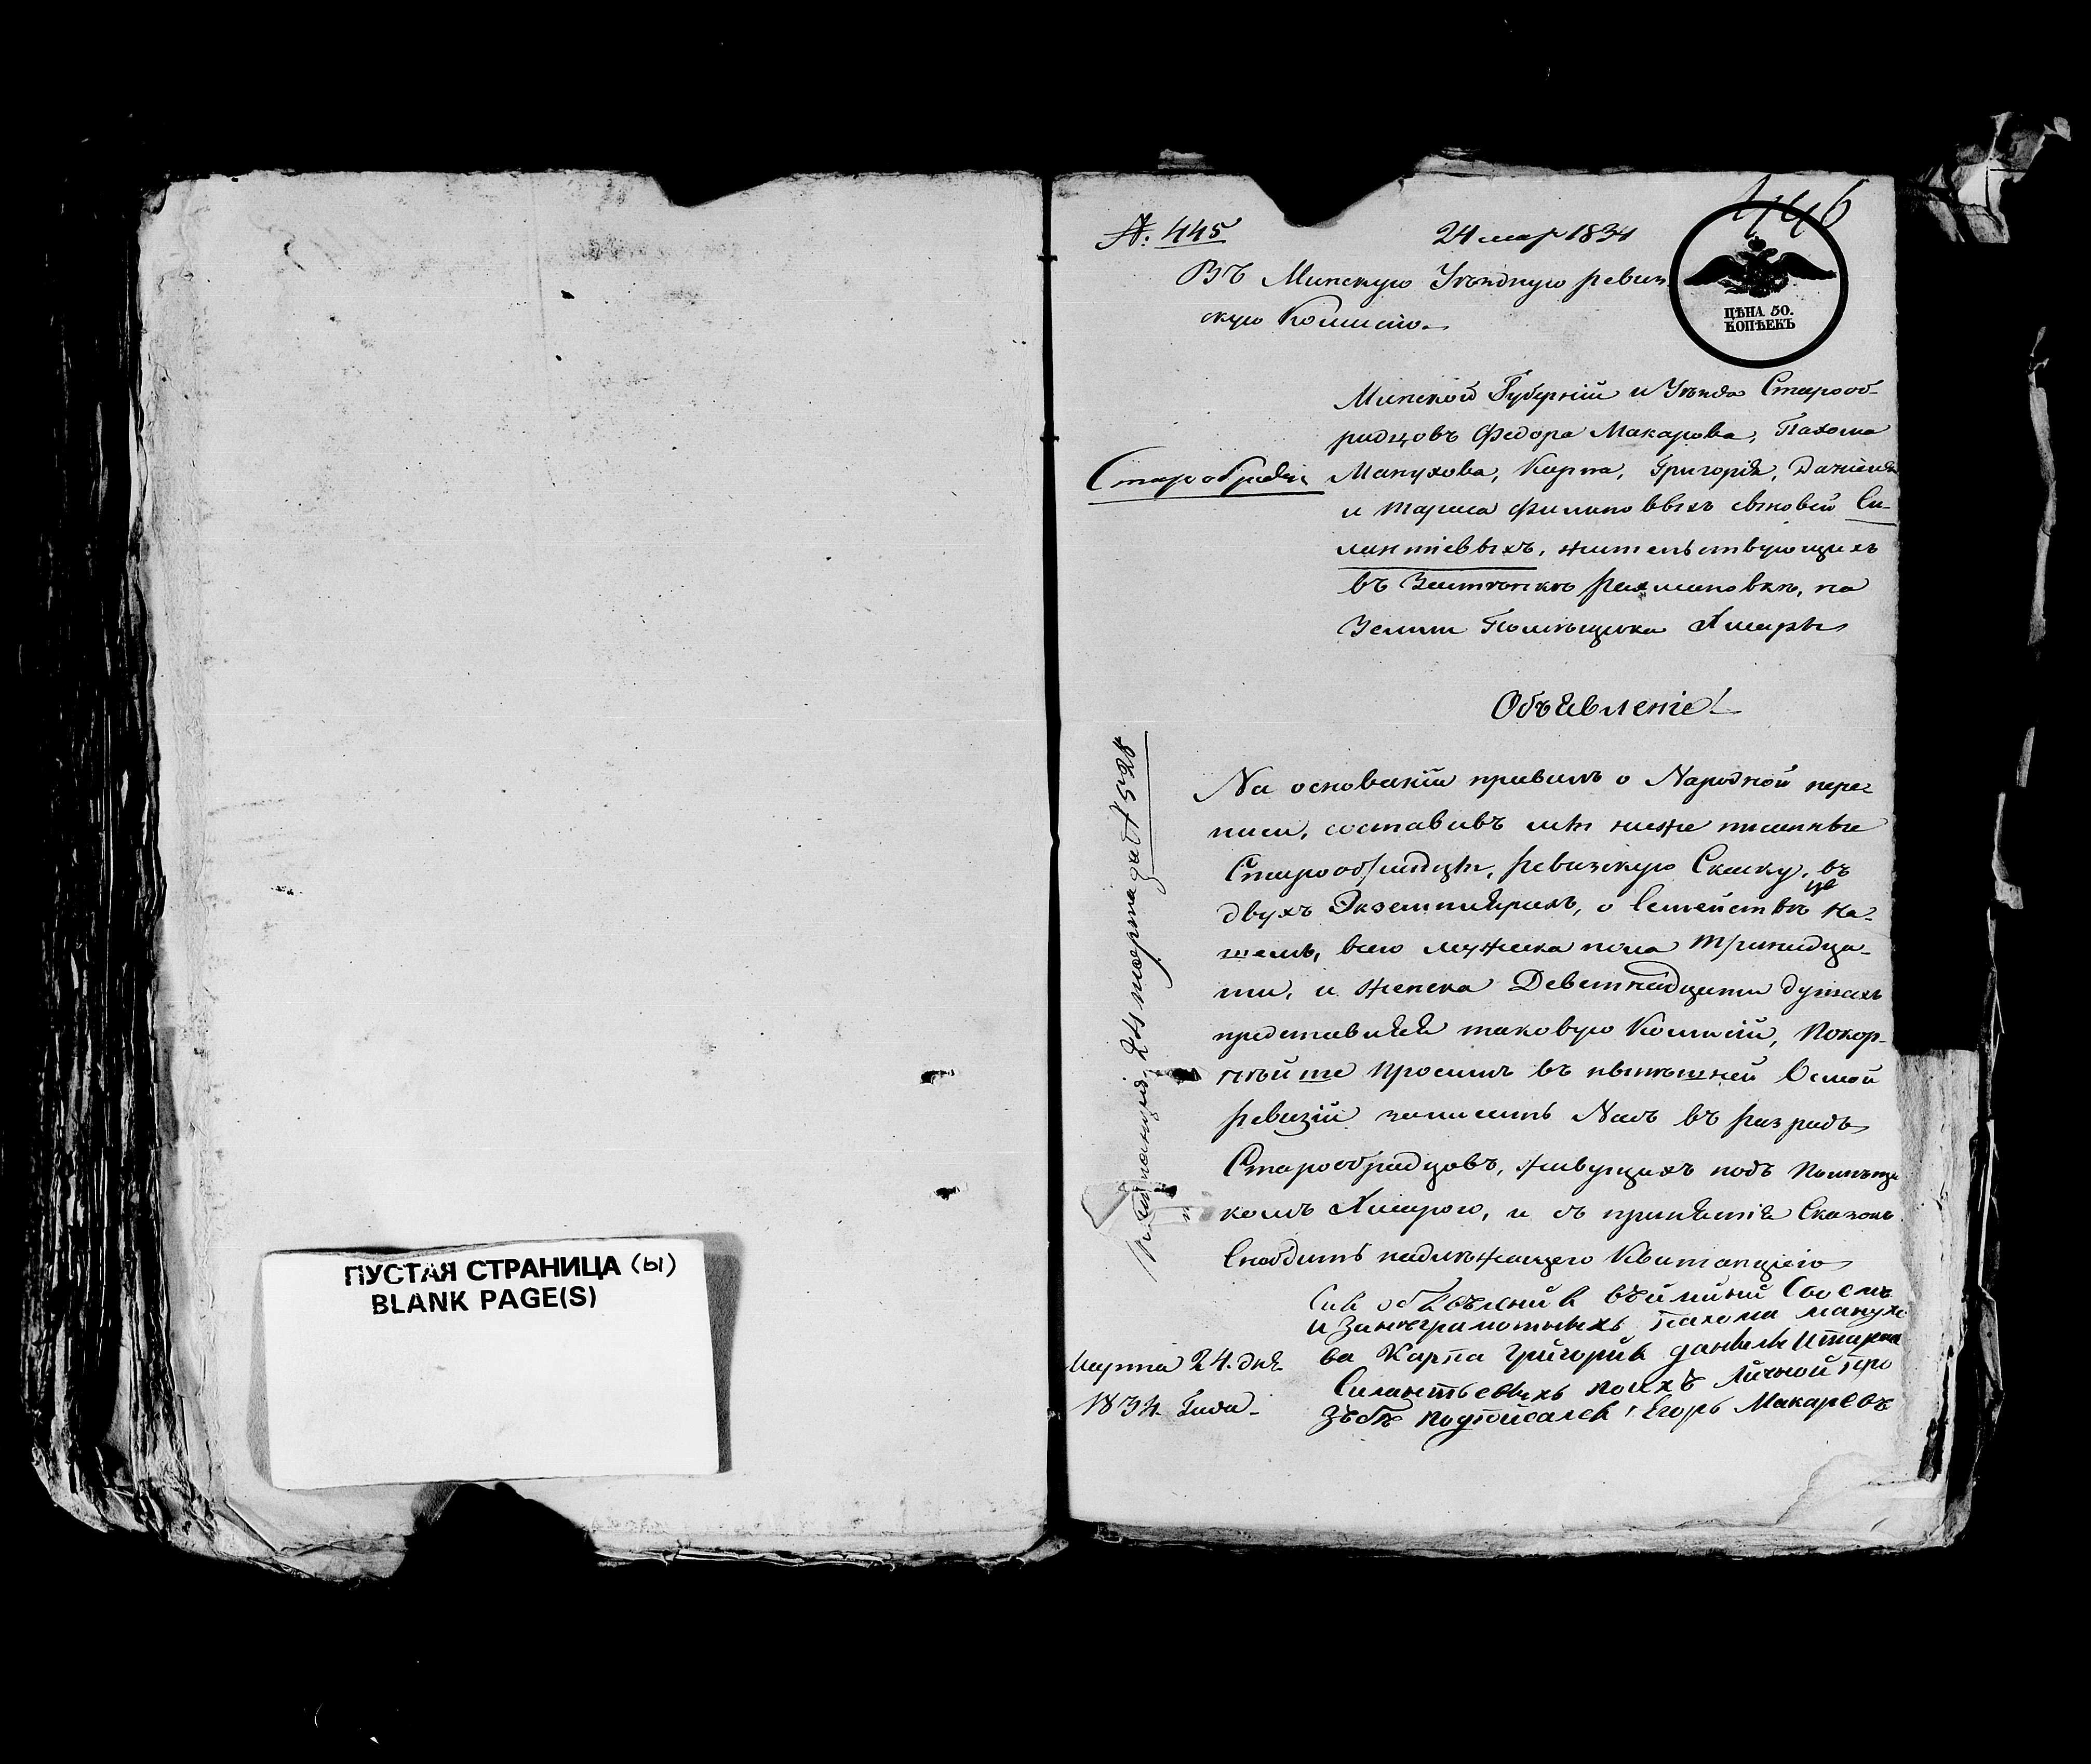 ПУСТАЯ СТРАНИЦА (ы)
BLANK PAGE(S)
446
№. 445
24 мар 1834
Въ Минскую Уѣздную ревиз
скую Комисію.
ЦѢНА 50.
КОПѢЕКЪ
Минской Губерніи и Уѣзда Старооб-
рядцовъ Федора Макарова, Пахома
Старообрядц Манухова, Карпа, Григорія, Даніеля
и Тараса Филиповыхъ сыновей Си-
лантіевыхъ, жительствующихъ
въ Застѣнкѣ Рахмановкѣ, на
Земли Помѣщика Хмары
Объявленіе!
На основаніи правилъ о Народной пере-
писи, составивъ мы ниже писанные
Старообрядцы, ревизскую Скаску, въ
двухъ Экземплярахъ, о Семействѣ На-
шемъ, всего мужеска пола тринадца-
ти, и женска Деветнадцати душахъ
представляя таковую Комисіи, Покор-
нѣйше просимъ въ нынѣшней Осмой
ревизіи записать Насъ въ разрядъ
Старообрядцовъ, живущихъ подъ Помѣщи
комъ Хмарою, и въ принятіи Сказокъ
Снабдить надлежащею Квитанціею
и Занеграмотныхъ пахома манухо
ва Карпа григорія данилы итараса
Силантьевыхъ поихъ личной про
збѣ подписался Егоръ Макаровъ
Марта 24. дня
1834 Года
24 марта 1528